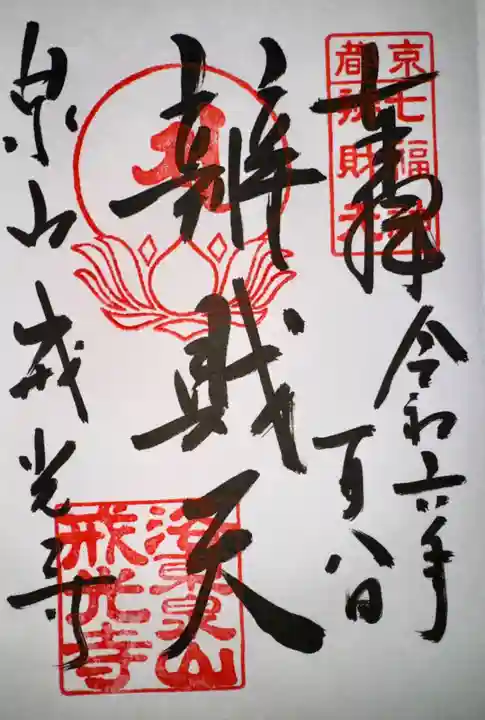 奉拝
令和六年
一月八日
京都
七福神
辨財天
辨財天
泉山戒光寺
洛東泉山
戒光寺